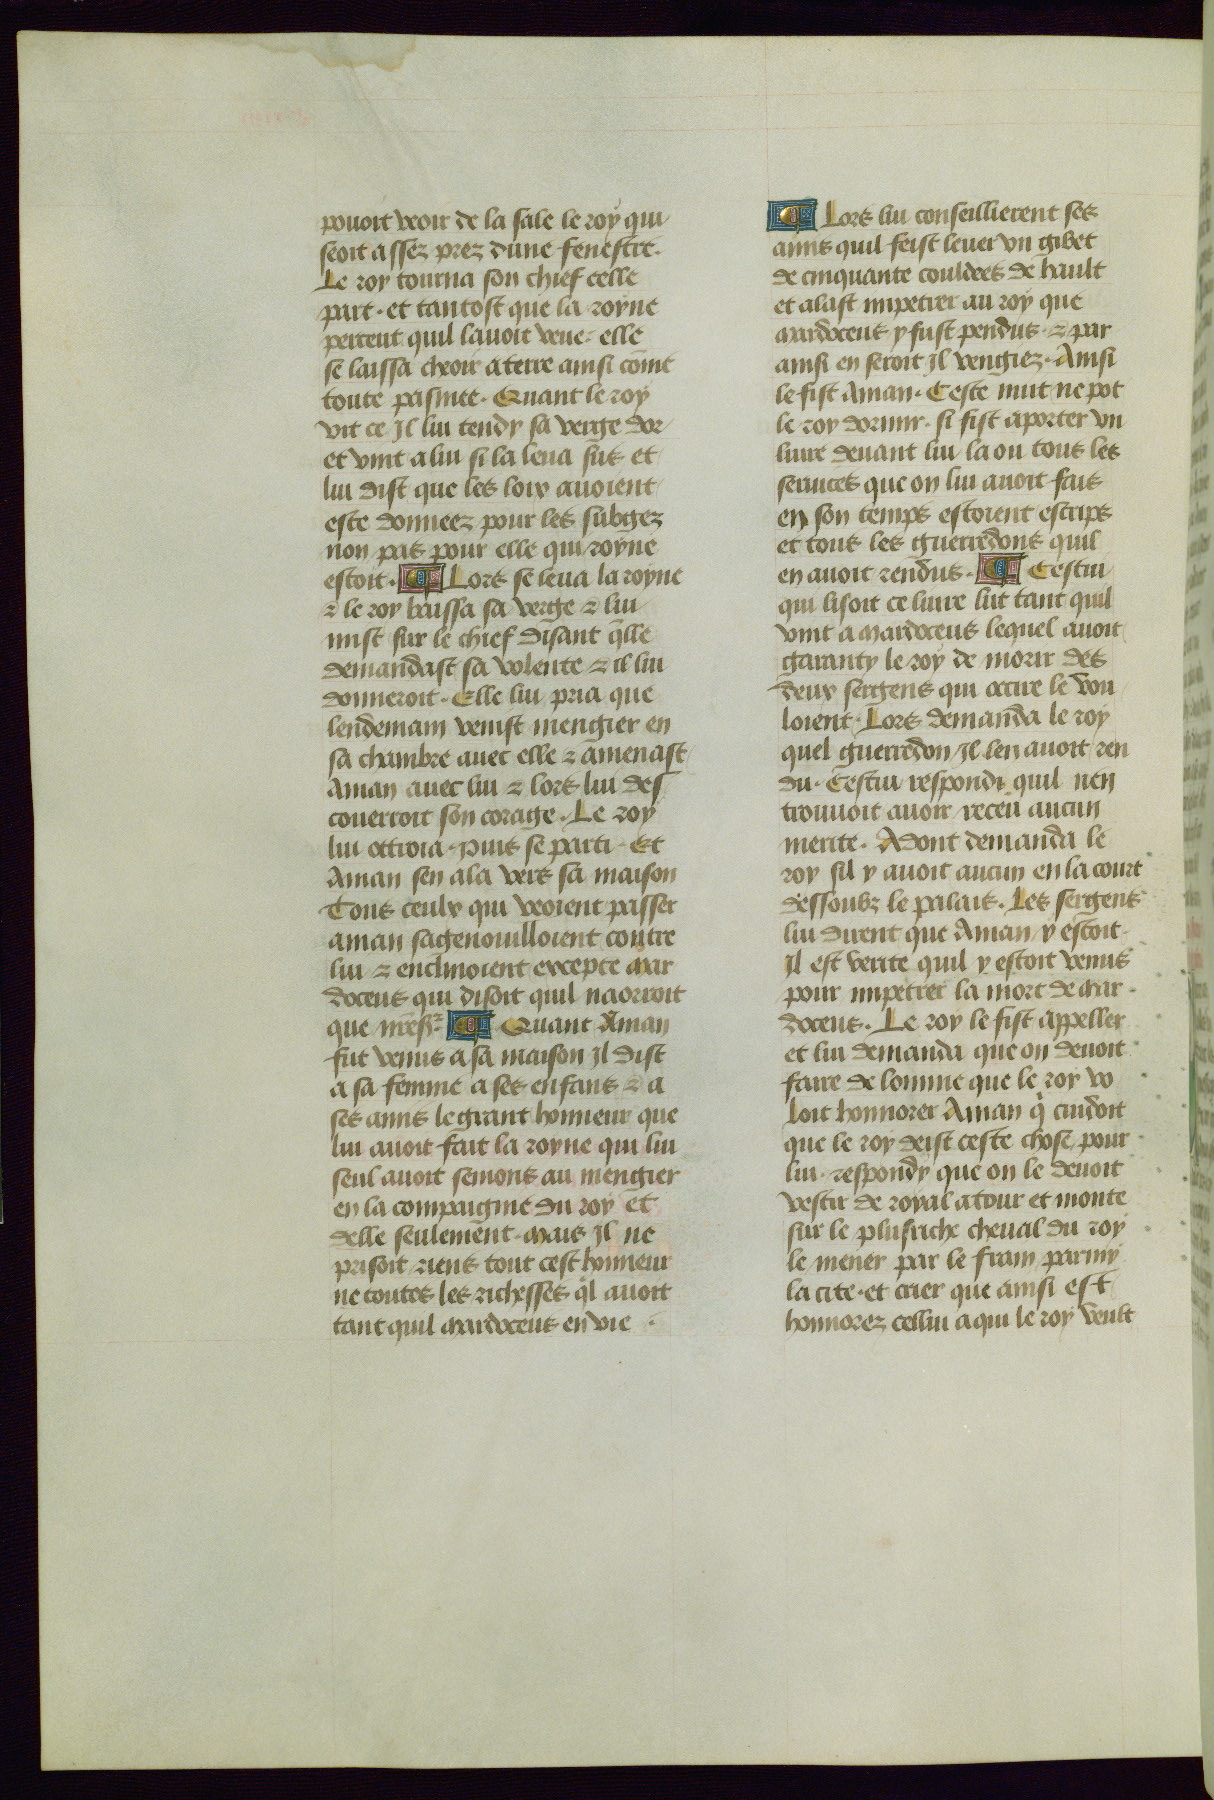 pouoit veoir de la sale le roy qui
seoit assez prez dune fenestre.
Le roy tourna son chief celle
part. et tantost que la royne
perceut quil lauoit veue. elle
se laissa cheoir a terre ainsi cōme
toute pasmee. Quant le roy
vit ce Il lui tendy sa verge dor
et vint a lui si la leua sus et
lui dist que les loix auoient
este donneez pour les subgez
non pas pour elle qui royne
estoit. ¶ Lors se leua la royne
⁊ le roy baissa sa verge ⁊ lui
mist sur le chief disant q̄lle
demandast sa volente ⁊ il lui
donneroit. Elle lui pria que
lendemain venist mengier en
sa chambre auec elle ⁊ amenast
Aman auec lui ⁊ lors lui des
couerroit son corage. Le roy
lui ottroia. puis se parti. Et
Aman sen ala vers sa maison
Tous ceulx qui veoient passer
aman sagenouilloient contre
lui ⁊ enclinoient excepte mar
doceus qui disoit quil naorroit
que ¶ Quant Aman
fut venus a sa maison Il dist
a sa femme a ses enfans ⁊ a
ses amis le grant honneur que
lui auoit fait la royne qui lui
seul auoit semons au mengier
en la compaignie du roy et
delle seulemēt. mais Il ne
prisoit riens tout cest honneur
ne toutes les richesses q̄l auoit
tant quil mardoceus en vie.
¶ Lors lui conseillierent ses
amis quil feist leuer vn gibet
de cinquante couldees de hault
et alast impetrer au roy que
mardoceus y fust pendus. ⁊ par
ainsi en seroit Il vengiez. Ainsi
le fist Aman. Ceste nuit ne pot
le roy dormir. si fist aporter vn
liure deuant lui la ou tous les
seruices que on lui auoit fais
en son temps estoient escrips
et tous les guerredons quil
en auoit rendus. ¶ Cestui
qui lisoit ce liure lut tant quil
vint a mardoceus lequel auoit
garanty le roy de morir des
deux sergens qui occire le vou
loient. Lors demanda le roy
quel guerredon Il len auoit ren
du. Cestui respondi quil nen
trouuoit auoir receu aucun
merite. Adont demanda le
roy sil y auoit aucun en la court
dessoubz le palais. Les sergens
lui dirent que Aman y estoit.
Il est verite quil y estoit venus
pour impetrer la mort de mar
doceus. Le roy le fist appeller
et lui demanda que on deuoit
faire de lomme que le roy vo
loit honnorer Aman q̇ cuidoit
que le roy deist ceste chose pour
lui. respondy que on le deuoit
vestir de royal atour et monte
sur le plus riche cheual du roy
le mener par le frain parmy
la cite. et crier que ainsi est
honnorez cellui a qui le roy veult